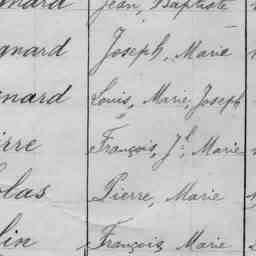 nard Jean, Baptiste
gnard Joseph, Marie
nard Louis, Marie, Joseph
erre François, Jh Marie
olas Pierre, Marie
lin François, Marie